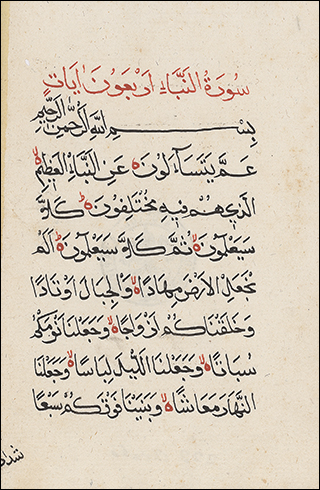 سورة النبأ اربعون ايات
بِسْمِ اللّٰهِ الرَّحْمٰنِ الرَّحِيْمِ
عَمَّ يَتَسَآءَلُوْنَ عَنِ النَّبَإِ الْعَظِيْمِ
الَّذِيْ هُمْ فِيْهِ مُخْتَلِفُوْنَ كَلَّا
سَيَعْلَمُوْنَ ثُمَّ كَلَّا سَيَعْلَمُوْنَ اَلَمْ
نَجْعَلِ الْاَرْضَ مِهَادًا وَالْجِبَالَ اَوْتَادًا
وَخَلَقْنَاكُمْ اَزْوَاجًا وَجَعَلْنَا نَوْمَكُمْ
سُبَاتًا وَجَعَلْنَا اللَّيْلَ لِبَاسًا وَجَعَلْنَا
النَّهَارَ مَعَاشًا وَبَنَيْنَا فَوْقَكُمْ سَبْعًا
شدادا